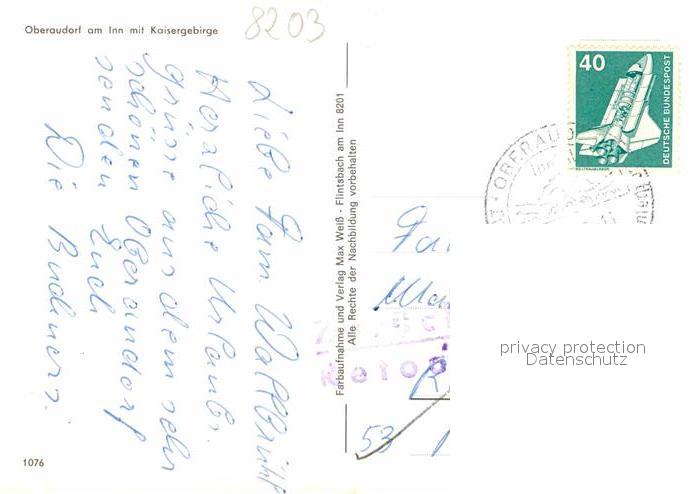 Oberaudorf am Inn mit Kaisergebirge
8203
Liebe Fam. Wallbrühl
Herzliche Urlaubs.
grüsse aus dem sehr
schönen Oberaudorf
senden Euch
Die Buchners.
1076
Farbaufnahme und Verlag Max Weiß - Flintsbach am Inn 8201
Alle Rechte der Nachbildung vorbehalten
40
DEUTSCHE BUNDESPOST
OBERAUDO
Inn
Fa
53
privacy protection
Datenschutz